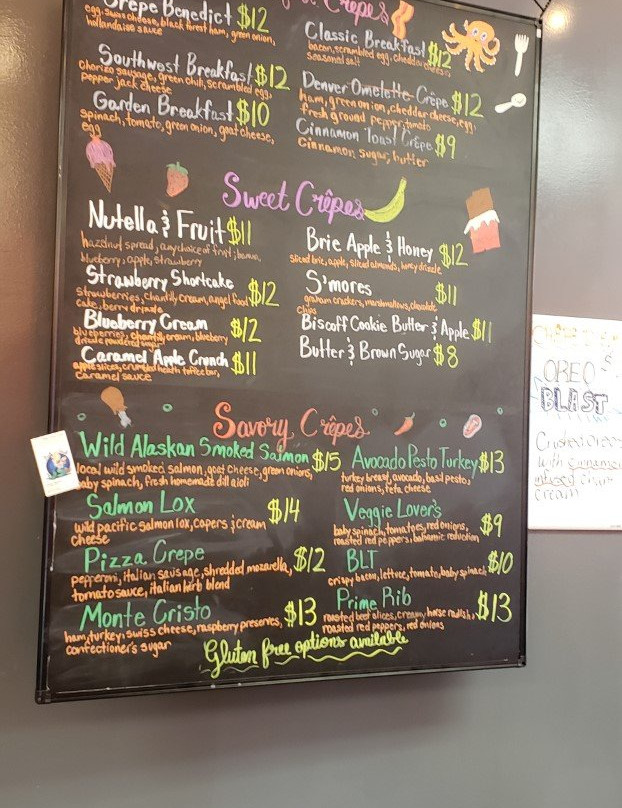 Crepe Benedict $12
egg, swiss cheese, black forest ham, green onion,
hollandaise sauce
Southwest Breakfast $12
chorizo sausage, green chili, scrambled egg,
pepper jack cheese
Garden Breakfast $10
spinach, tomato, green onion, goat cheese,
egg
Crêpes
Classic Breakfast $12
bacon, scrambled egg, cheddar cheese,
seasonal salt
Denver Omelette Crêpe $12
ham, green onion, cheddar cheese, egg,
fresh ground pepper, tomato
Cinnamon Toast Crêpe $9
Cinnamon, sugar, butter
Sweet Crêpes
Nutella & Fruit $11
hazelnut spread, any choice of fruit; banana,
blueberry, apple, strawberry
Strawberry Shortcake $12
strawberries, chantilly cream, angel food
cake, berry drizzle
Blueberry Cream $12
blueberries, chantilly cream, blueberry
drizzle powdered sugar
Caramel Apple Crunch $11
apple slices, crumbled heath toffee bar,
Caramel sauce
Brie Apple & Honey $12
sliced brie, apple, sliced almonds, honey drizzle
S'mores $11
graham crackers, marshmallows, chocolate
chips
Biscoff Cookie Butter & Apple $11
Butter & Brown Sugar $8
Savory Crêpes
Wild Alaskan Smoked Salmon $15
local wild smoked salmon, goat cheese, green onions,
baby spinach, fresh homemade dill aioli
Salmon Lox $14
wild pacific salmon lox, capers & cream
cheese
Pizza Crepe $12
pepperoni, italian sausage, shredded mozarella,
tomato sauce, italian herb blend
Monte Cristo $13
ham, turkey, swiss cheese, raspberry preserves,
confectioner's sugar
Avocado Pesto Turkey $13
turkey breast, avocado, basil pesto,
red onions, feta cheese
Veggie Lover's $9
baby spinach, tomatoes, red onions,
roasted red peppers, balsamic reduction
BLT $10
crispy bacon, lettuce, tomato, baby spinach
Prime Rib $13
roasted beef slices, cream, horse radish,
roasted red peppers, red onions
Gluten free options available
OREO
BLAST
Crushed oreos
with
cream